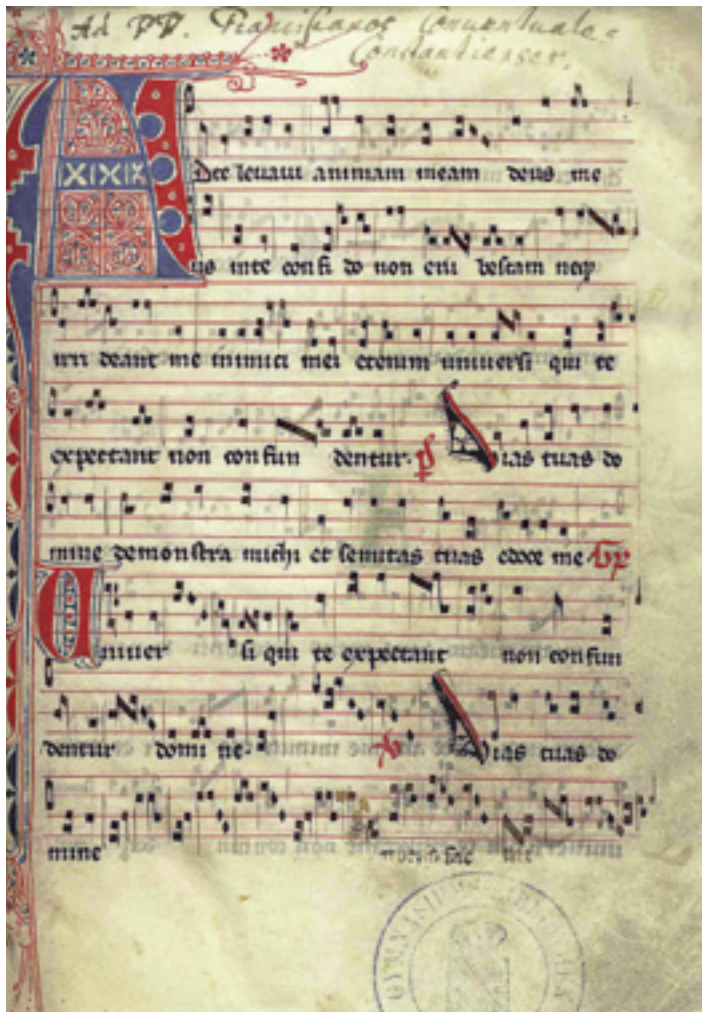 Ad PP. Franciscanos Conventuales
Constantienses.
A Dte leuaui animam meam deus me
us inte confi do non eru bescam neqꝫ
irri deant me inimici mei etenim uniuersi qui te
expectant non confun dentur. ps Uias tuas do
mine demonstra michi et semitas tuas edoce me
Uniuer si qui te expectant non confun
dentur domi ne ℣ Uias tuas do
mine fac me
GYMNASIUMS BIBLIOTHEK